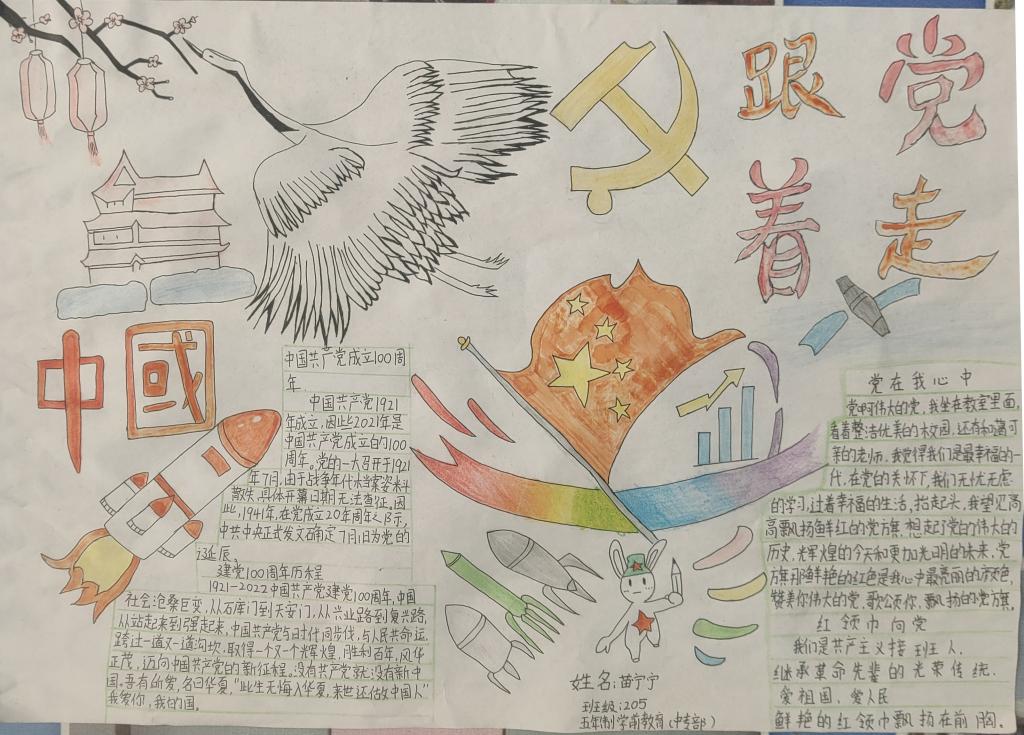 跟党
着走
中國
中国共产党成立100周
年
中国共产党1921
年成立，因此2021年是
中国共产党成立的100
周年。党的一大召开于1921
年7月，由于战争年代档案资料
散失，具体开幕日期无法查征。因
此，1941年，在党成立20年周年之际，
中共中央正式发文确定7月1日为党的
诞辰。
建党100周年历程
1921-2022中国共产党建党100周年，中国
社会沧桑巨变，从石库门到天安门，从兴业路到复兴路，
从站起来到强起来，中国共产党与时代同步伐，与人民共命运，
跨过一道又一道沟坎，取得一个又一个辉煌，胜利百年，风华
正茂，迈向中国共产党的新征程。没有共产党就没有新中
国。吾有所爱，名曰华夏，“此生无悔入华夏，来世还做中国人”
我爱你，我的国。
党在我心中
党啊伟大的党，我坐在教室里面，
看着整洁优美的校园，还有和蔼可
亲的老师，我觉得我们是最幸福的一
代，在党的关怀下，我们无忧无虑
的学习，过着幸福的生活，抬起头，我望见高
高飘扬鲜红的党旗，想起了党的伟大的
历史，光辉煌的今天和更加光明的未来，党
旗那鲜艳的红色是我心中最亮丽的颜色，
赞美你伟大的党，歌颂你，飘扬的党旗。
红领巾向党
我们是共产主义接班人，
继承革命先辈的光荣传统，
爱祖国、爱人民
鲜艳的红领巾飘扬在前胸。
姓名：苗宁宁
班级：205
五年制学前教育（中专部）